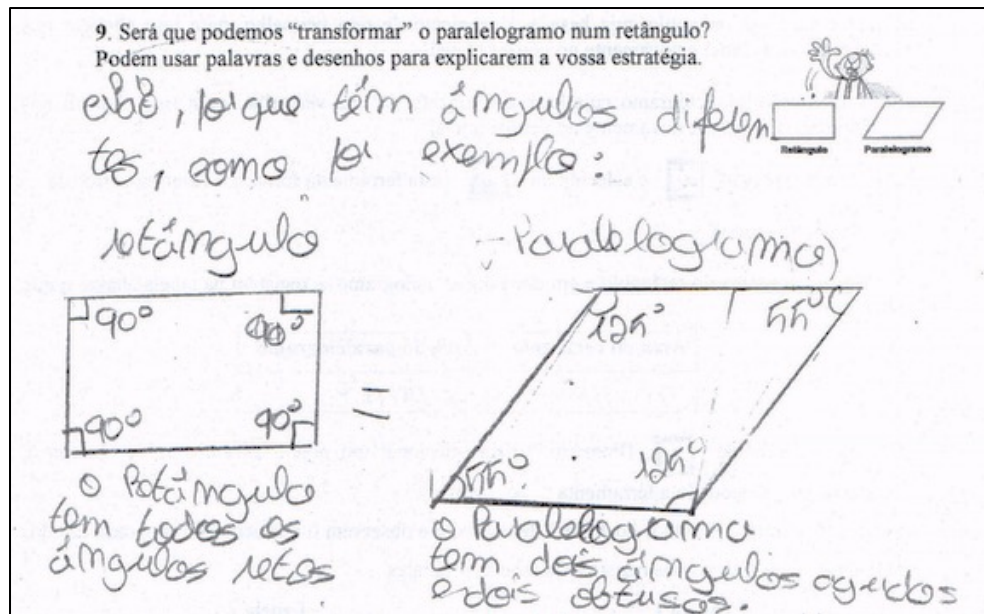 9. Será que podemos "transformar" o paralelogramo num retângulo?
Podem usar palavras e desenhos para explicarem a vossa estratégia.
por que têm ângulos diferen
tes, como por exemplo:
Retângulo Paralelogramo
retângulo Paralelogramo
90° 90° 125° 55°
=
90° 90° 55° 125°
o Retângulo
tem todos os
ângulos retos
o Paralelogramo
tem dois ângulos agudos
e dois obtusos.